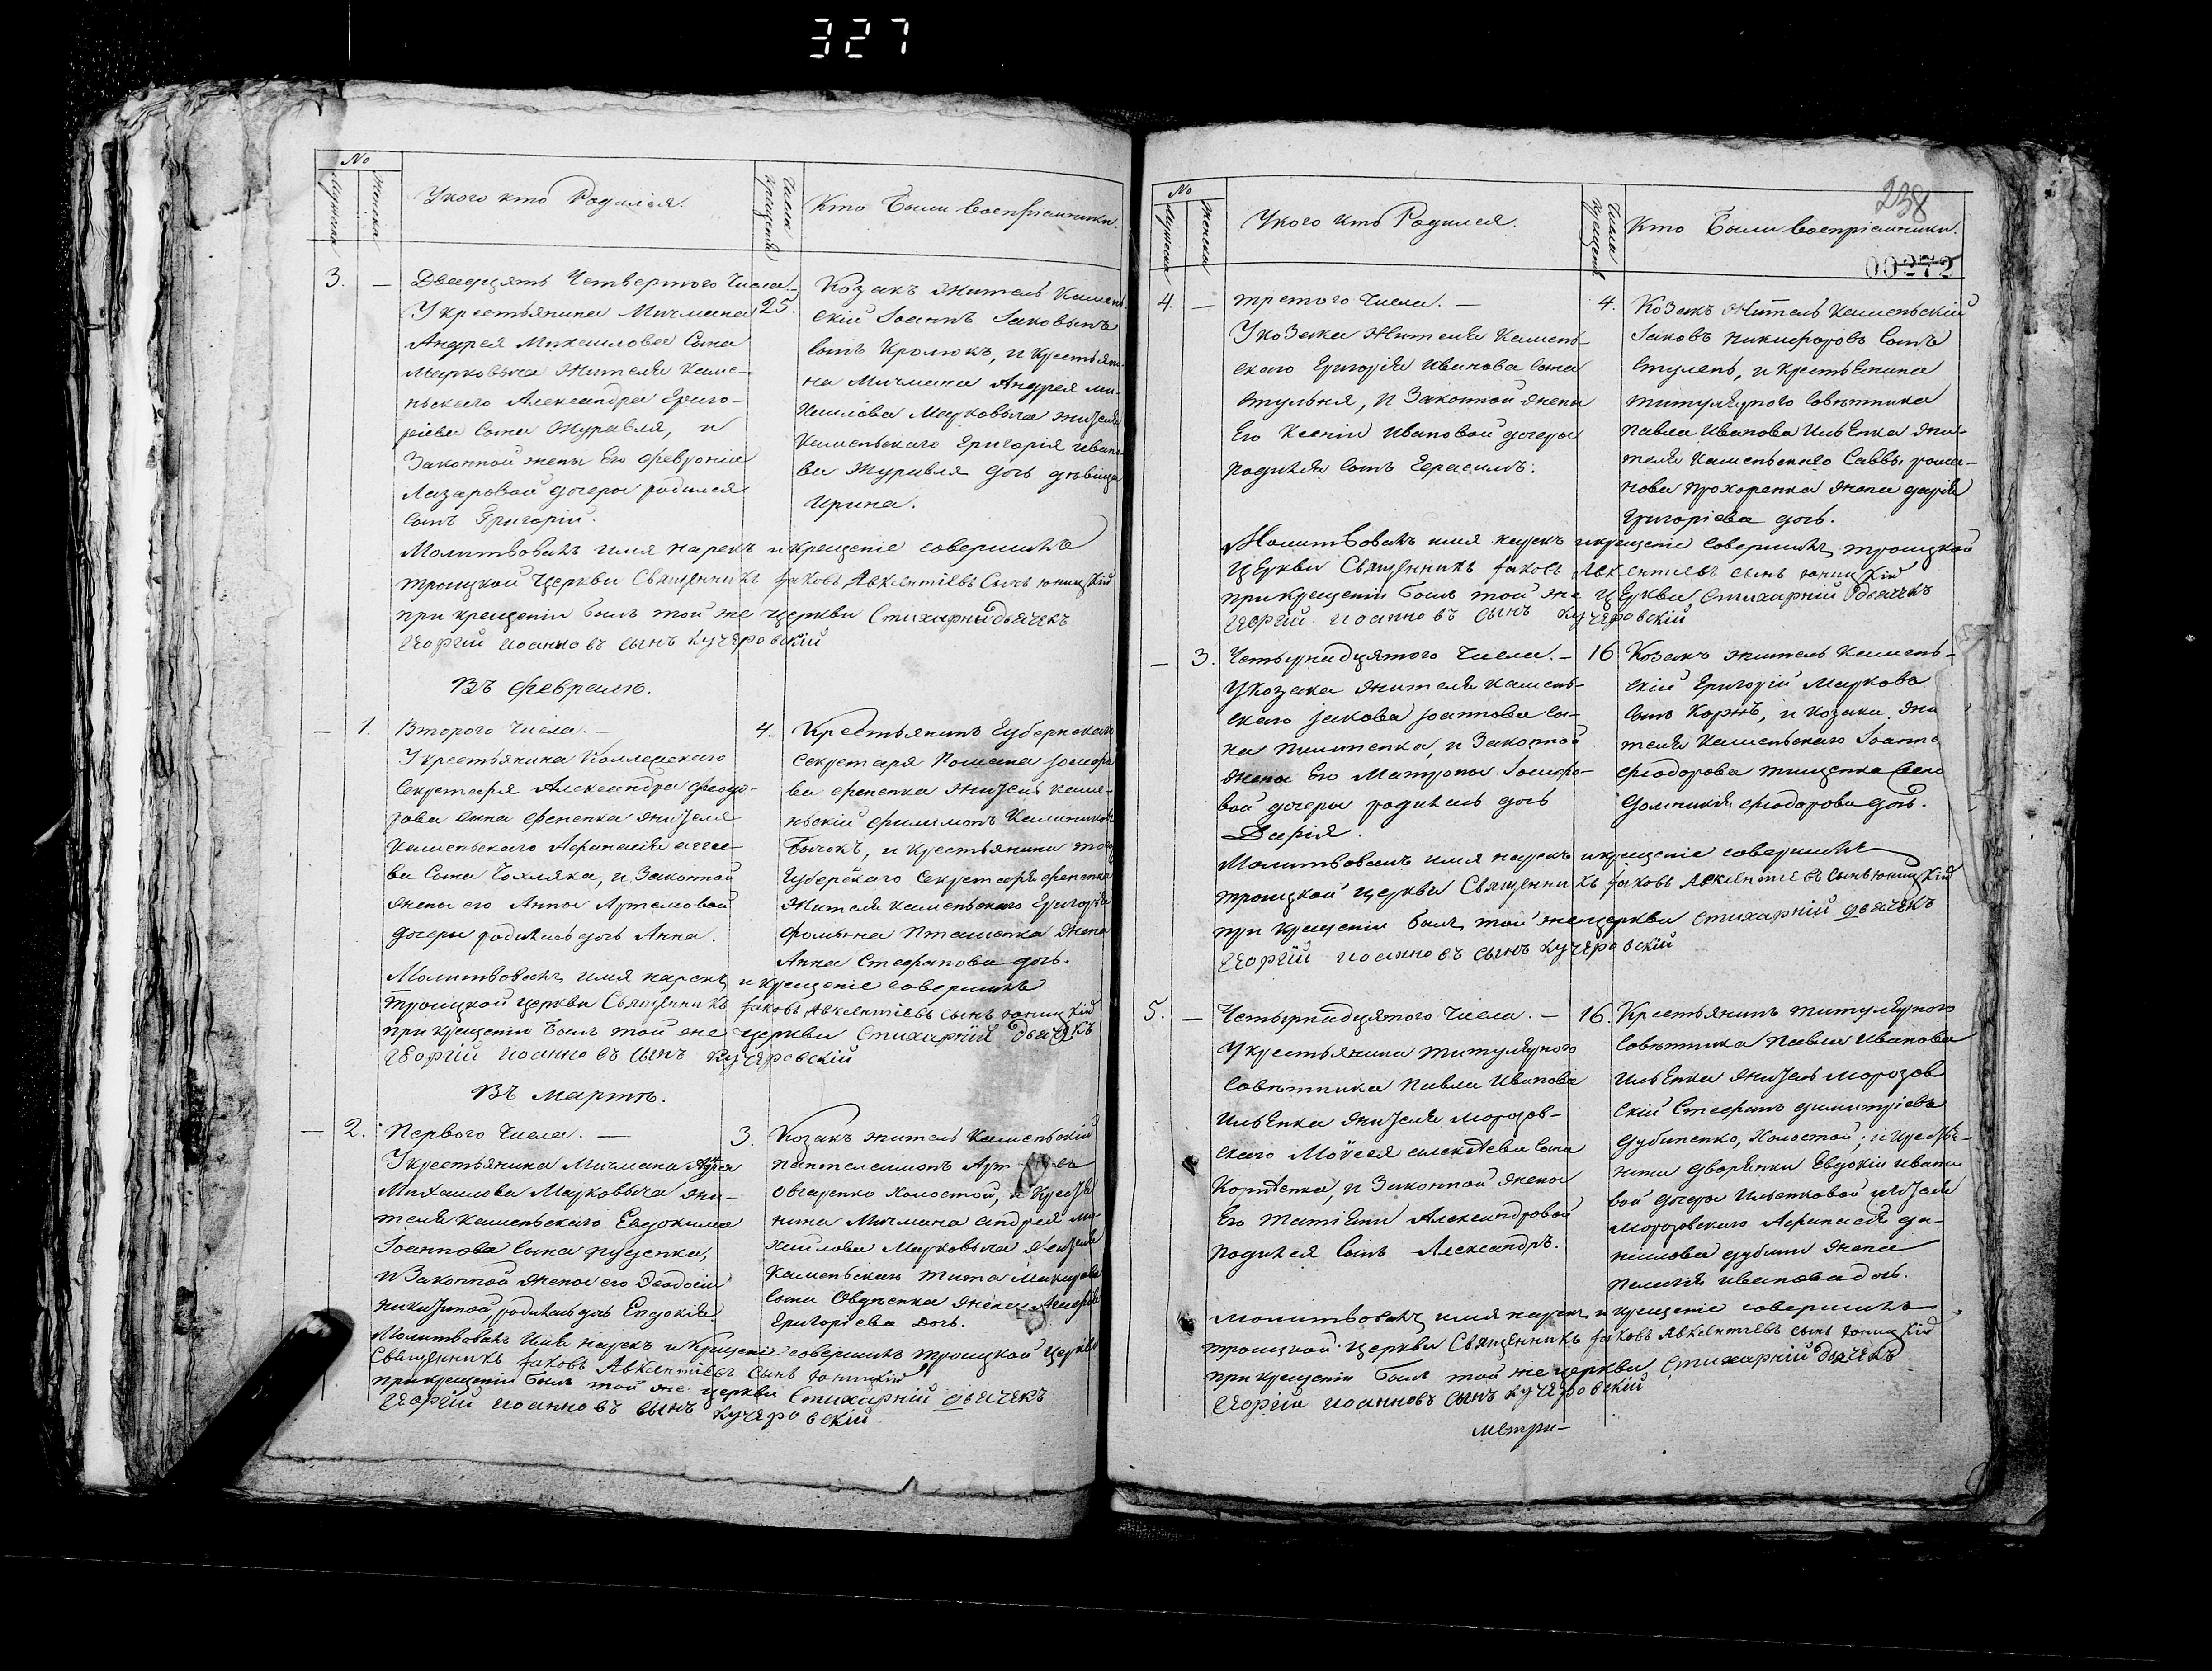 327
No
Мужска
Женска
У кого кто Родился.
Числа крещенія
Кто Были воспріемники.
3. —
Двадцять Четвертого Числа. —
У крестьянина Мичмана
Андрея Михаилова Сына
Марковича жителя Каме-
ньского Александра Григо-
ріева Сына Журавля, и
Законной жены Его Февроніи
Лазаровой дочери родился
сынъ Григорій.
25.
Козакъ житель Камень
скій Іоаннъ Іаковывъ
сынъ Кролюкъ, и крестьяни-
на Мичмана Андрея Ми-
хаилова Марковича жителя
Каменьского Григорія Ивано
ва Журавля дочь дѣвица
Ирина.
Молитвовалъ имя нарекъ и крещеніе совершилъ
троицкой Церкви Священникъ Іаковъ Авксентіевъ Сынъ Юницкій
при крещеніи былъ той же церкви Стихарній дьячекъ
Георгій Иоанновъ сынъ Кучеровскій
Въ Февралѣ.
— 1.
Второго числа. —
У крестьянина Коллежского
Секретаря Александра Феодо-
рова сына Фененка жителя
Каменьского Афанасія
ва Сына Чохляка, и Законной
жены его Анны Артемовой
дочери родилась дочь Анна.
4.
Крестьянинъ Губернскаго
секретаря Романа Іосифо
ва Фененка житель каме-
ньскій Филимонъ Калинниковъ
Бычокъ, и крестьянина того
Губерского Секретаря Фененка
Жителя каменьского Григорія
Фомына Пташенка жена
Анна Стефанова дочь.
Молитвовалъ имя нарекъ и крещеніе совершилъ
троицкой церкви Священникъ Іаковъ Авксентіевъ сынъ Юницкій
при крещеніи былъ той же церкви Стихарній дьячекъ
Георгій Иоанновъ сынъ Кучеровскій
Въ Мартѣ.
— 2.
Первого Числа. —
У крестьянина Мичмана Андрея
Михаилова Марковича жи-
теля каменьского Евдокима
Іоаннова сына Руденка,
и Законной жены его Феодосіи
родилась дочь Евдокія.
3.
Козакъ житель Каменьскій
пантелеимонъ
Овчаренко Холостой, и Крестья
нина Мичмана Андрея Ми-
хаилова Марковича жителя
Каменьского Тита
сына Овдѣенка жена
Григоріева дочь.
Молитвовалъ Имя нарекъ и Крещеніе совершилъ троицкой Церкви
Священникъ Іаковъ Авксентіевъ Сынъ Юницкій
при крещеніи былъ той же церкви Стихарній дьячекъ
Георгій Иоанновъ сынъ Кучеровскій
No
Мужска
Женска
У кого кто Родился.
Числа крещенія
Кто Были воспріемники.
238
00272
4. —
третого числа. —
У козака Жителя Камень-
ского Григорія Иванова сына
Ступьня, и Законной жены
Его Ксеніи Ивановой дочери
родился сынъ Герасимъ.
4.
Козакъ Житель Каменьскій
Іаковъ Никифоровъ сынъ
Ступень, и крестьянина
титулярного совѣтника
Павла Иванова Ильенка жи-
теля Каменьского Саввы рома-
нова прохоренка жена дарія
Григоріева дочь.
Молитвовалъ имя нарекъ и крещеніе совершилъ троицкой
Церкви Священникъ Іаковъ Авксентіевъ сынъ Юницкій
при крещеніи былъ той же церкви Стихарній дьячекъ
Георгій Иоанновъ сынъ Кучеровскій
— 3.
Четырнадцятого Числа. —
У козака жителя камень-
ского Іакова Іоаннова сы-
на Пилипенка, и Законной
жены Его Матроны Іосифо-
вой дочери родилась дочь
Дарія.
16
Козакъ житель Камень-
скій Григорій Маркова
сынъ Коржъ, и козака жи
теля Каменьского Іоанна
Феодорова тищенка
Домникія Феодорова дочь.
Молитвовалъ имя нарекъ и крещеніе совершилъ
троицкой церкви Священникъ Іаковъ Авксентіевъ Сынъ Юницкій
при крещеніи былъ той же церкви стихарній дьячекъ
Георгій Иоанновъ сынъ Кучеровскій
5. —
Четырнадцятого числа. —
У крестьянина титулярного
совѣтника Павла Иванова
Ильенка жителя Морозов-
ского Моѵсея Алексѣева сына
и Законной жены
Его Татіяны Александровой
родился сынъ Александръ.
16.
Крестьянинъ титулярного
Совѣтника Павла Иванова
Ильенка житель Морозов
скій Стефанъ димитріевъ
дубиненко, Холостой; и крестья-
нина дворянки Евдокіи Ивано
вой дочери Ильенковой жителя
Морозовского Афанасія да-
нилова дубины жена
Пелагія Иванова дочь.
Молитвовалъ имя нарекъ и крещеніе совершилъ
троицкой церкви Священникъ Іаковъ Авксентіевъ сынъ Юницкій
при крещеніи былъ той же церкви Стихарній дьячекъ
Георгій Иоанновъ сынъ Кучеровскій
метри-